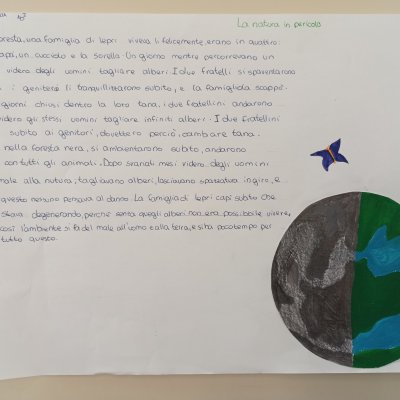 La natura in pericolo
foresta, una famiglia di lepri viveva lì felicemente, erano in quattro:
un cucciolo e la sorella. Un giorno mentre percorrevano un
videro degli uomini tagliare alberi. I due fratelli si spaventarono
i genitori li tranquillizzarono subito, e la famigliola scappò.
giorni chiusi dentro la loro tana, i due fratellini andarono
videro gli stessi uomini tagliare infiniti alberi. I due fratellini
subito ai genitori, dovettero perciò, cambiare tana.
nella foresta nera, si ambientarono subito, andarono
con tutti gli animali. Dopo svariati mesi videro degli uomini
male alla natura; tagliavano alberi, lasciavano spazzatura in giro, e
questo nessuno pensava al danno. La famiglia di lepri capì subito che
stava degenerando, perché senza quegli alberi non era possibile vivere,
così l'ambiente si fa del male all'uomo e alla terra, e si ha poco tempo per
tutto questo.